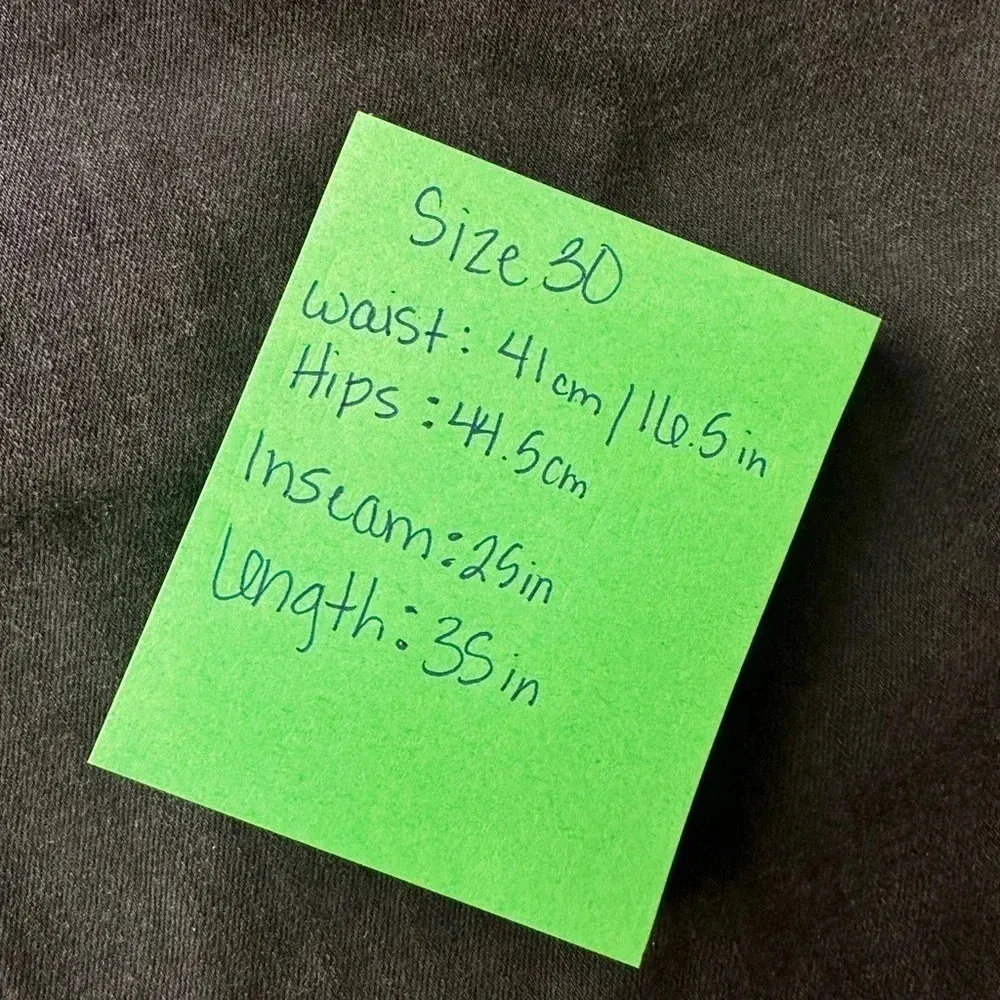 Size 30
Waist: 41cm/16.5in
Hips: 44.5cm
Inseam: 25in
Length: 35in